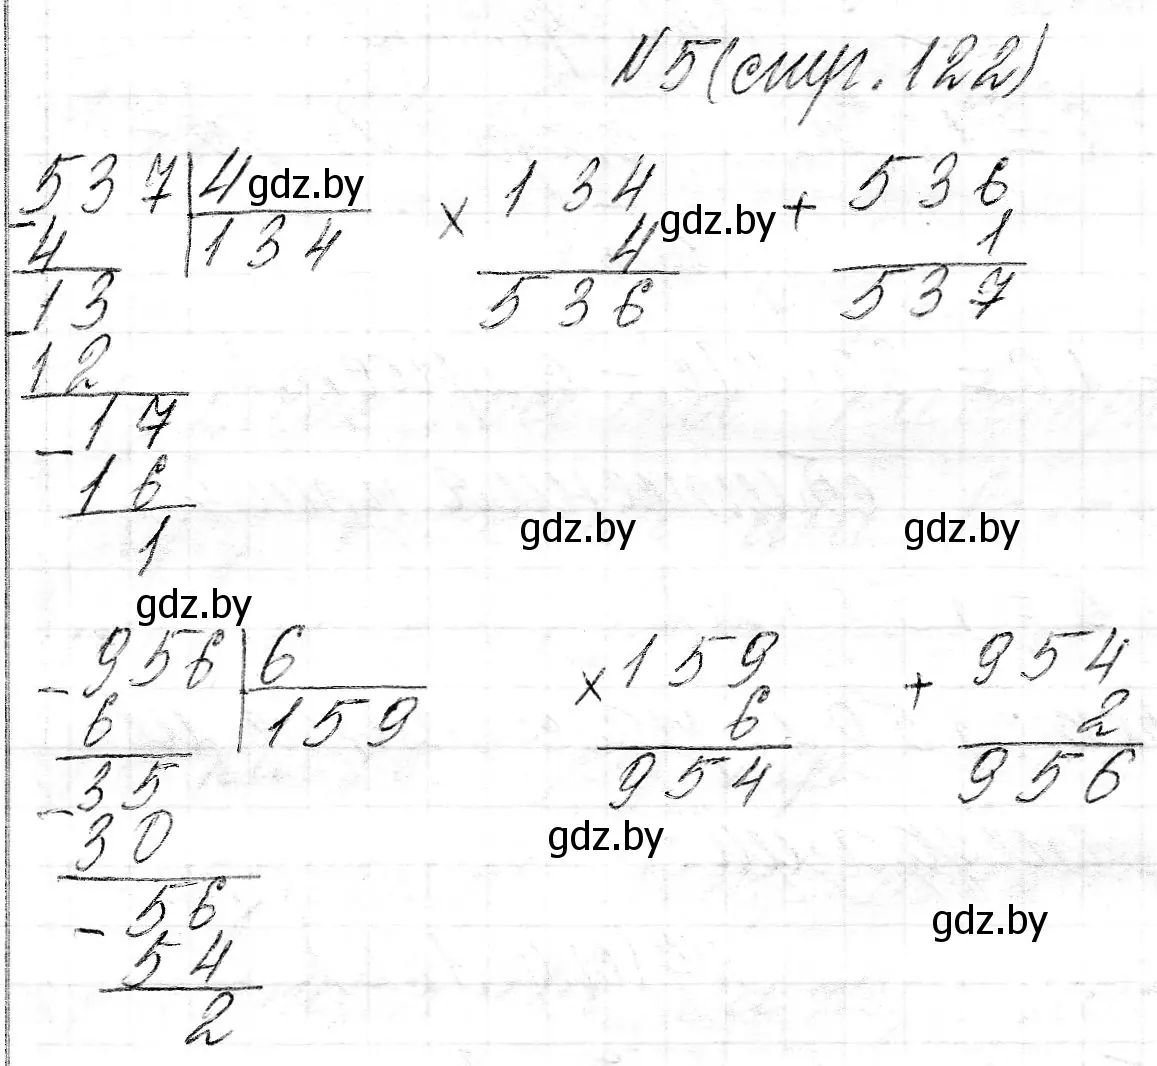 N 5 (стр. 122)
537 4 gdz.by × 134 gdz.by + 536
- 4 134 4 1
13 536 537
- 12
17
- 16
1
gdz.by gdz.by
gdz.by
956 6 × 159 + 954
- 6 159 6 2
35 954 956
- 30 gdz.by
56
- 54 gdz.by
2